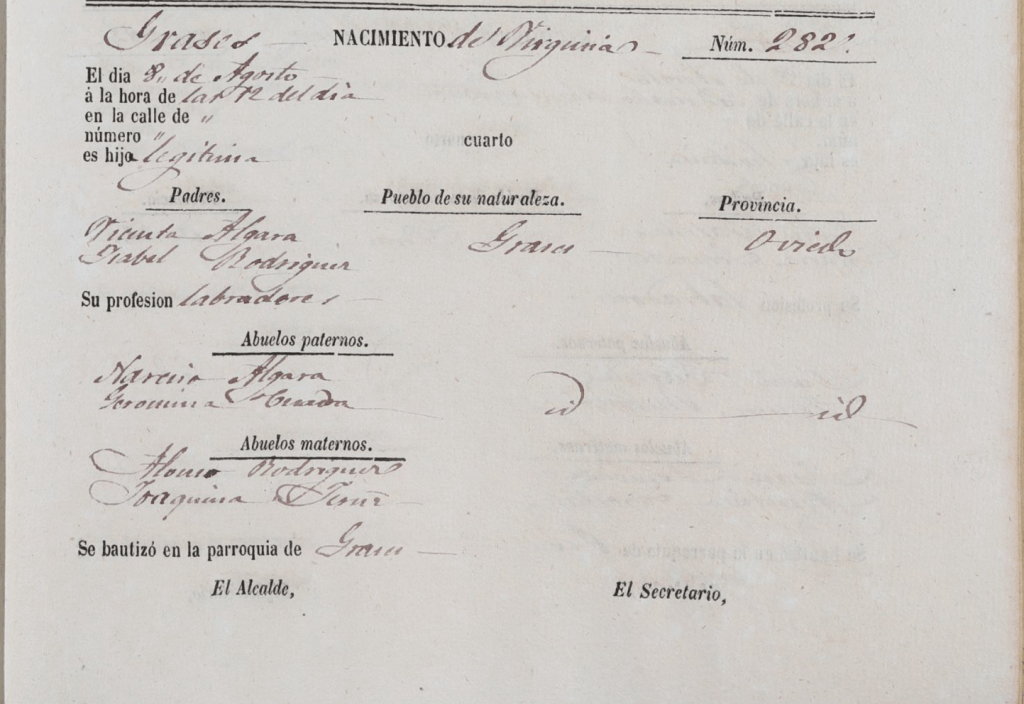 Grases NACIMIENTO de Virginia Núm. 282
El dia 8 de Agosto
á la hora de las 12 del dia
en la calle de "
número " cuarto
es hijo legitima
Padres. Pueblo de su naturaleza. Provincia.
Vicente Algara Grases Oviedo
Isabel Rodriguez
Su profesion labradores
Abuelos paternos.
Narciso Algara id id
Geronima
Abuelos maternos.
Alonso Rodriguez
Joaquina
Se bautizó en la parroquia de Grases
El Alcalde, El Secretario,